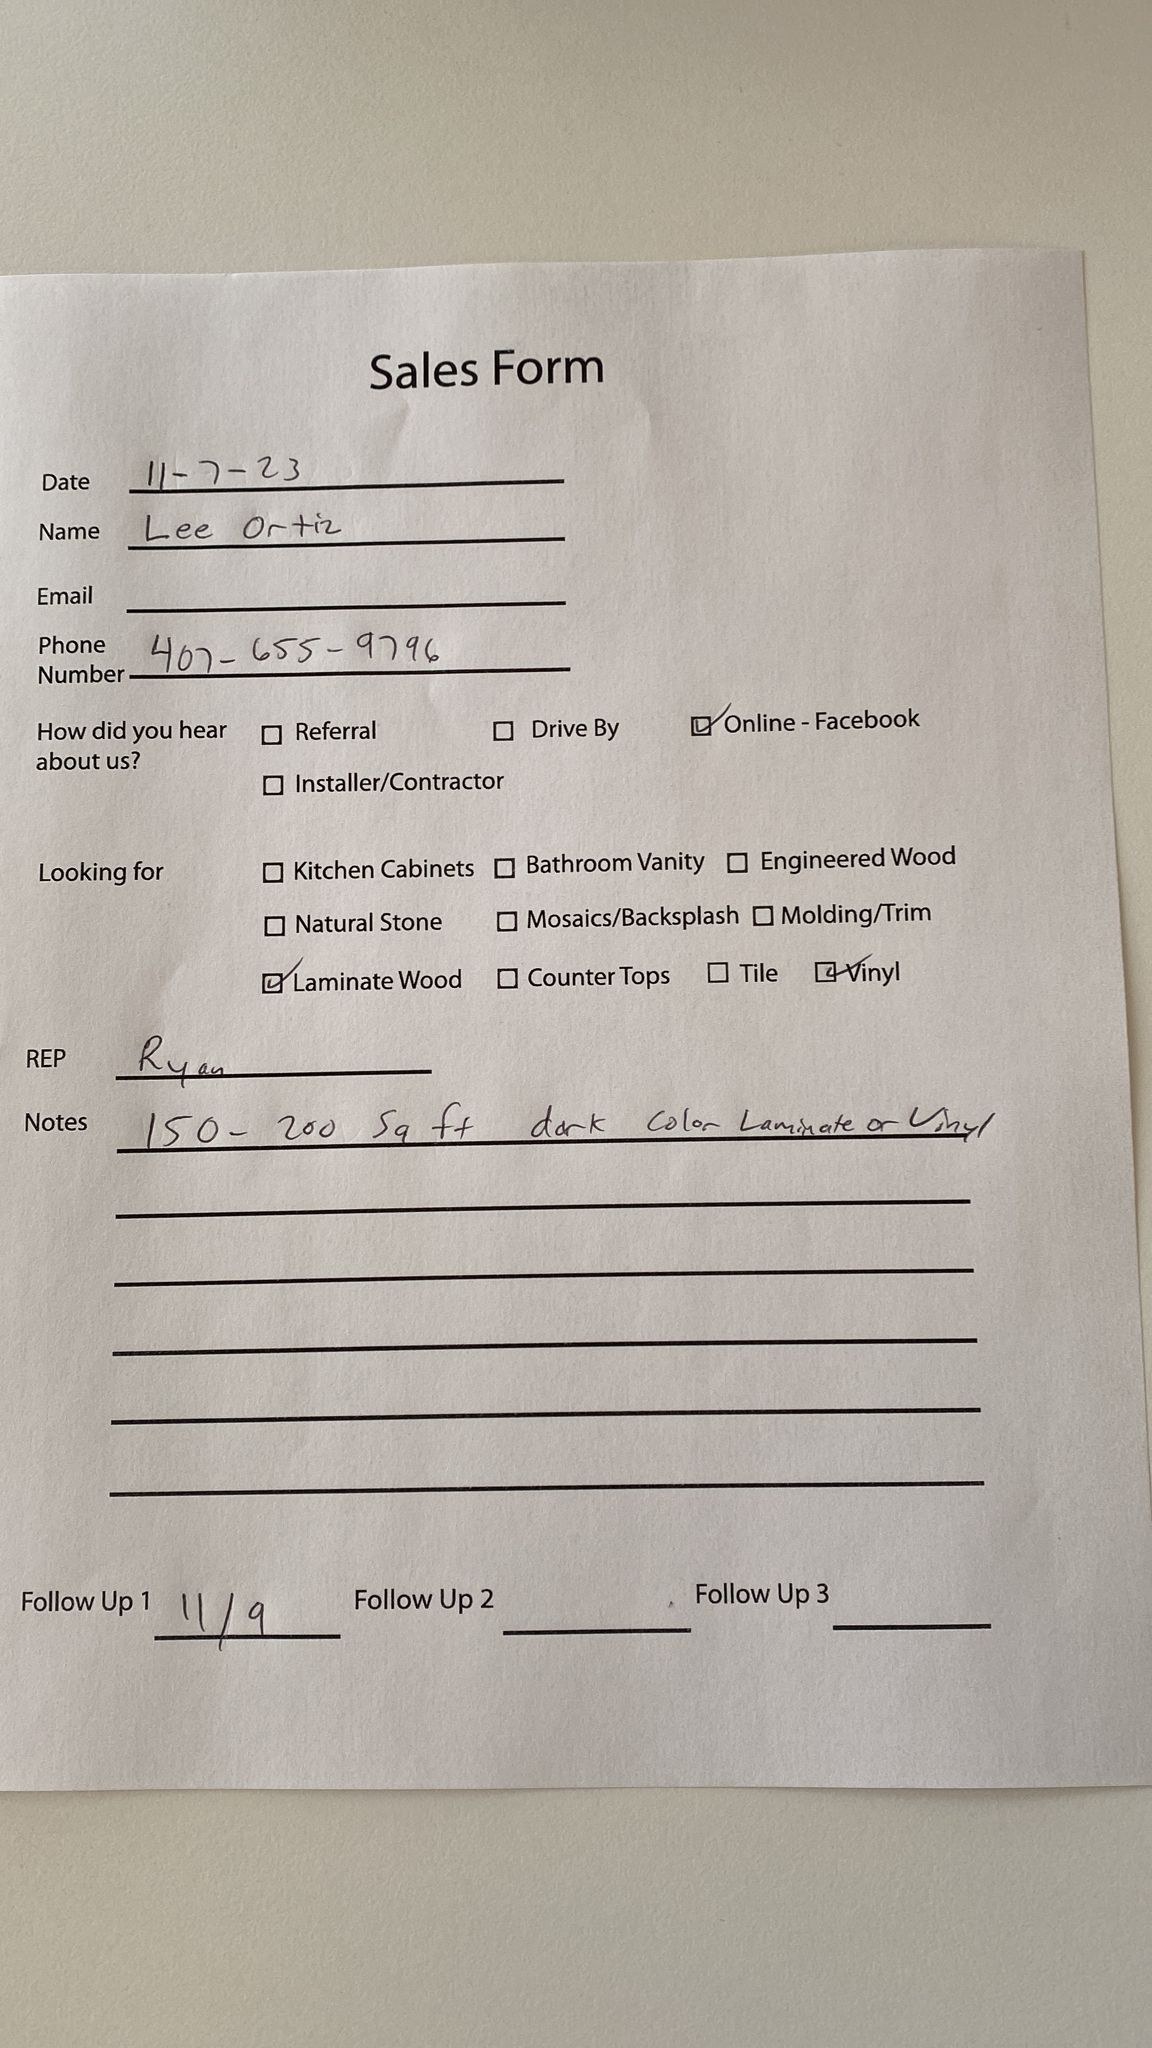 Sales Form
Date 11-7-23
Name Lee Ortiz
Email
Phone
Number 407-655-9796
How did you hear Referral Drive By Online - Facebook
about us?
Installer/Contractor
Looking for Kitchen Cabinets Bathroom Vanity Engineered Wood
Natural Stone Mosaics/Backsplash Molding/Trim
Laminate Wood Counter Tops Tile Vinyl
REP Ryan
Notes 150-200 Sq ft dark color Laminate or Vinyl
Follow Up 1 11/9 Follow Up 2 Follow Up 3